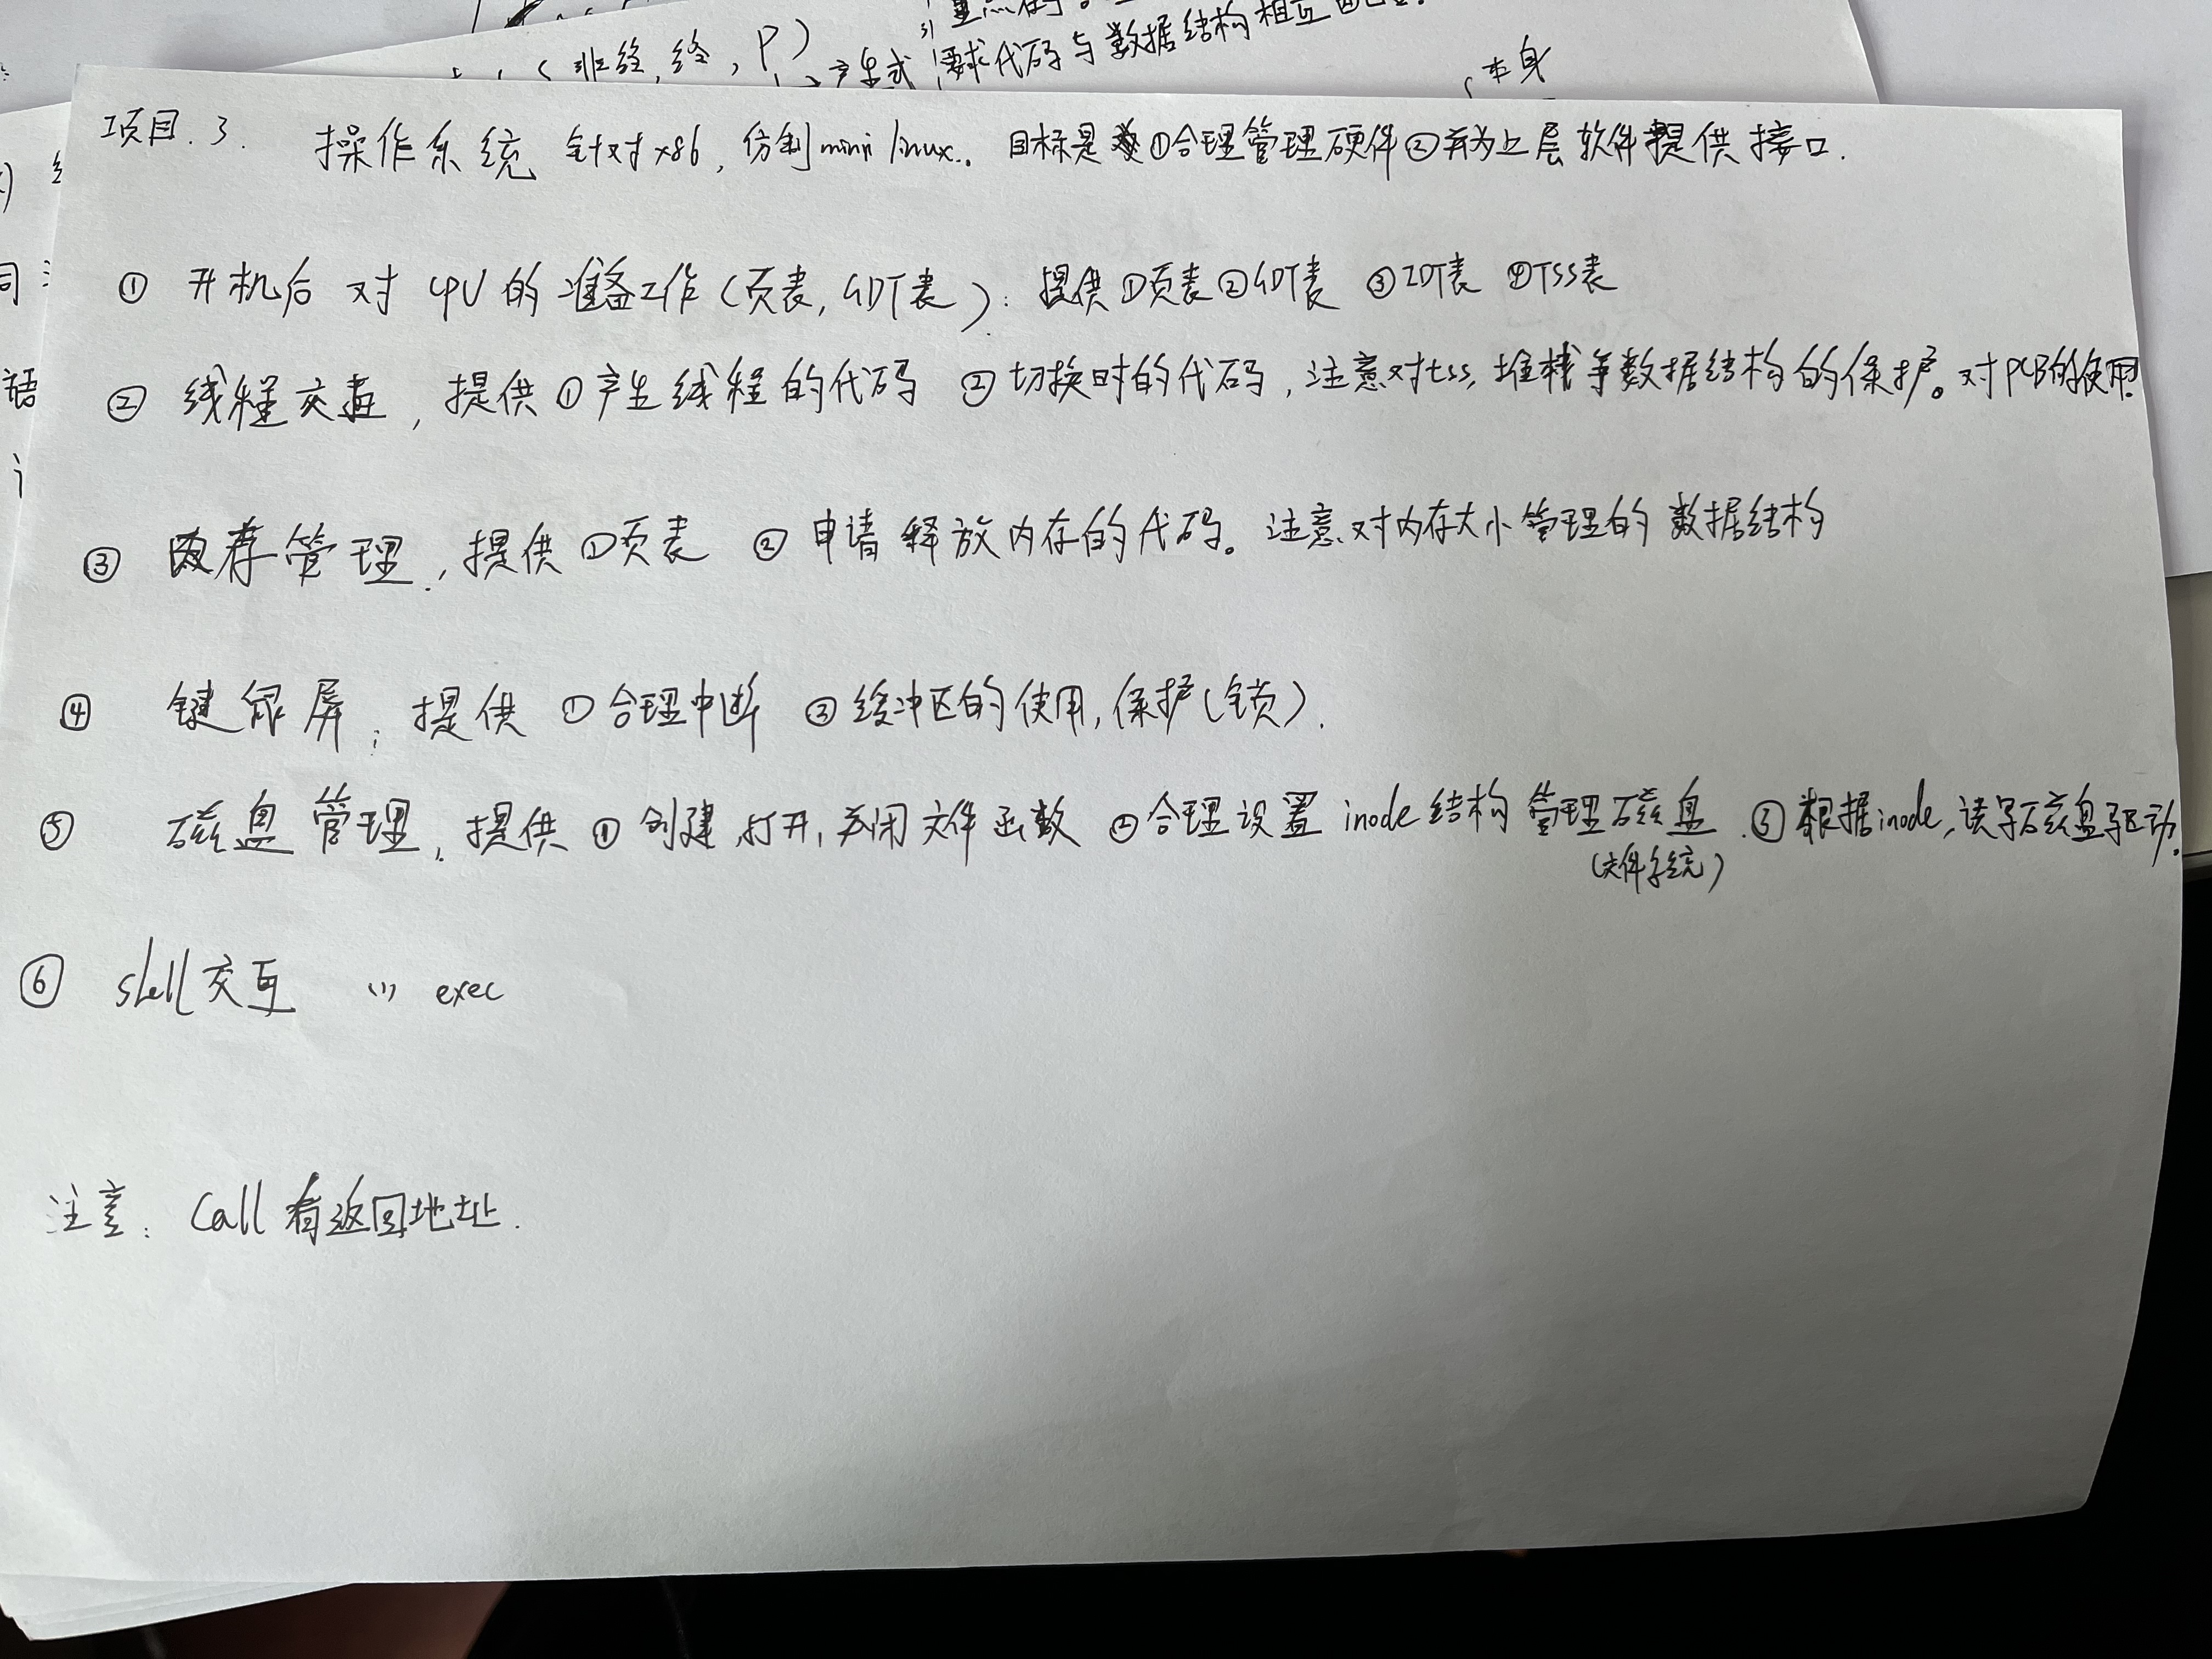 重点
(非终, 终, P)
产生式
要求代码与数据结构相互
本身
项目.3. 操作系统 针对x86, 仿制mini linux.。目标是 ①合理管理硬件②并为上层软件提供接口.
① 开机后 对 CPU 的 准备工作(页表, GDT表): 提供①页表②GDT表 ③IDT表 ④TSS表
② 线程交替, 提供①产生线程的代码 ②切换时的代码, 注意对tss, 堆栈等数据结构的保护。对PCB的使用.
③ 内存管理, 提供①页表 ②申请释放内存的代码。注意对内存大小管理的数据结构
④ 键 屏; 提供 ①合理中断 ②缓冲区的使用, 保护(锁).
⑤ 磁盘管理, 提供①创建,打开,关闭文件函数 ②合理设置 inode结构 管理磁盘. ③根据inode, 读写磁盘驱动。
(文件系统)
⑥ shell交互 (1) exec
注意: call 有返回地址.
语
同